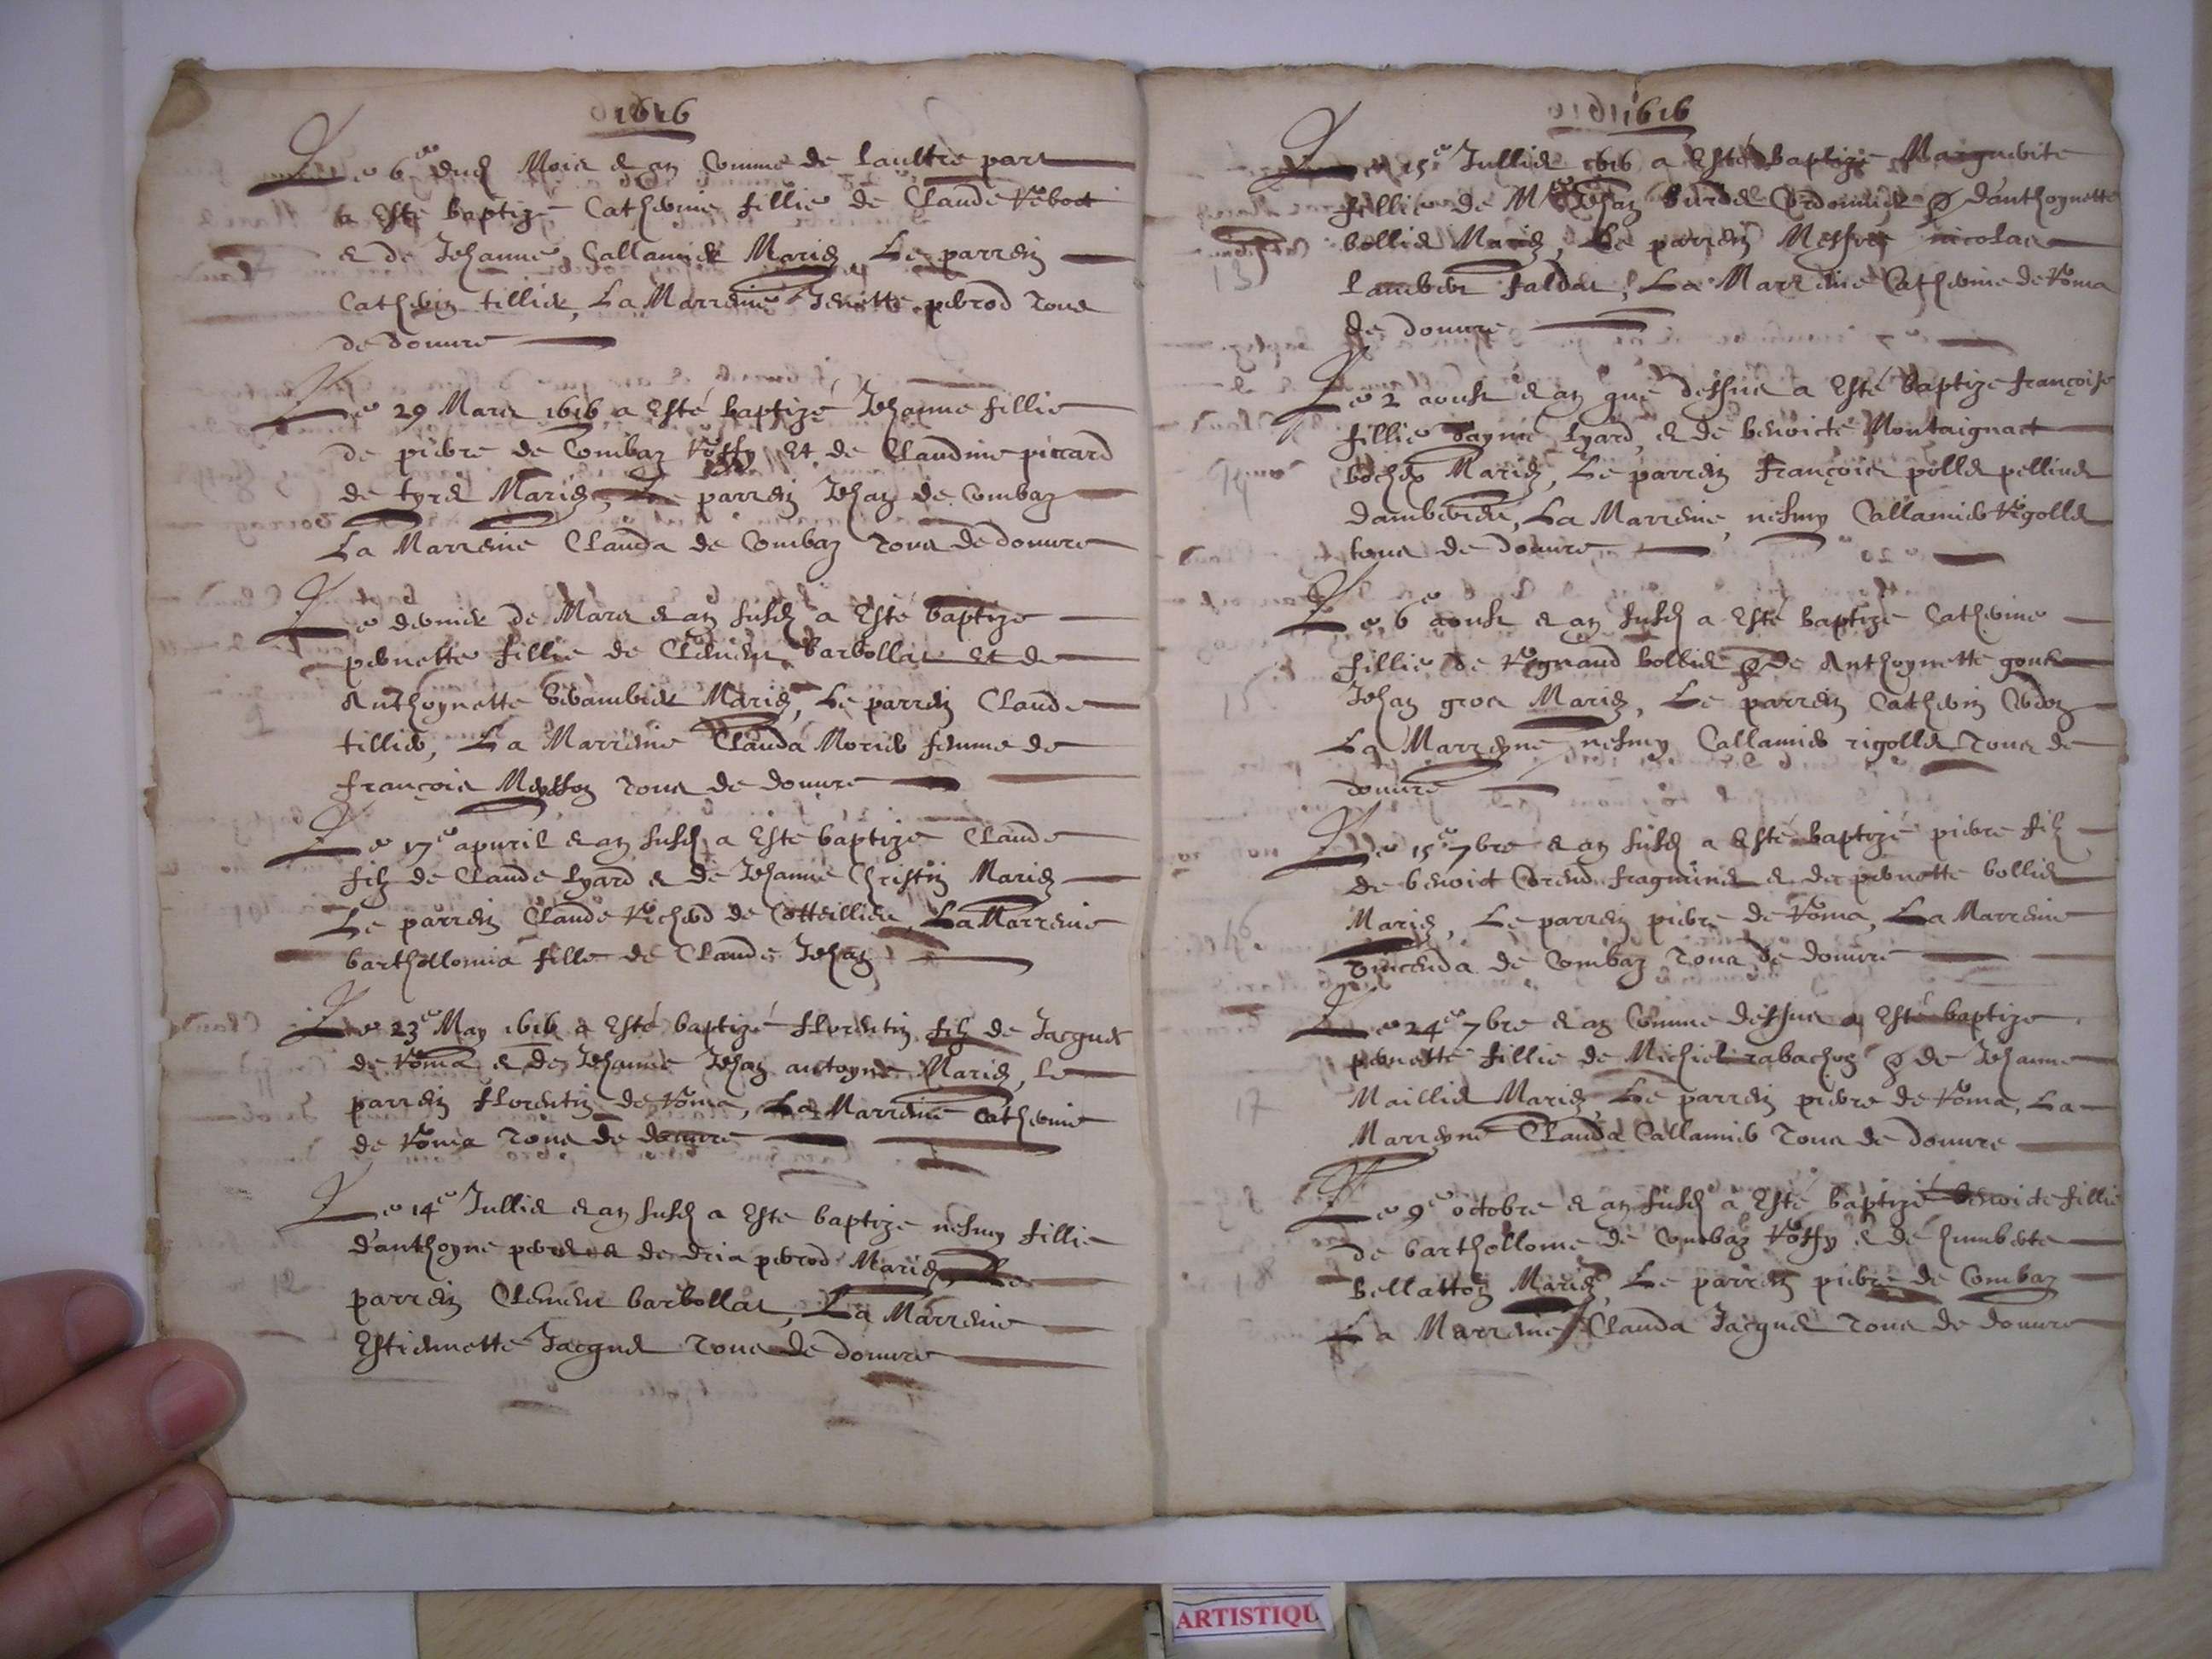 1616
Le 6e dud Mois & an Comme de Laultre part
a Esté baptizé Catherine fillie de Claude Reboct
& de Jehanne Callamier Mariez Le parrein
Catherin tillier, La Marreine Jenette perrod tous
de douure
Le 29 Mars 1616 a Esté baptizé Jehanne fillie
de pierre de Combaz Rossy Et de Claudine piccard
de tyre Mariez, Le parrein Jehan de Combaz
La Marreine Clauda de Combaz tous de douure
Le dernier de Mars & an susd a Esté baptize
pernette fillie de Clement barbollat Et de
Anthoynette Mariez, Le parrein Claude
tillier, La Marreine Clauda Morier femme de
françois tous de douure
Le 17e apuril & an susd a Este baptize Claude
filz de Claude Lyard & de Jehanne Christin Mariez
Le parrein Claude Richerd de Cotteillier, La Marreine
barthollomia fille de Claude Jehan
Le 23e May 1616 a Esté baptizé florentin filz de Jacques
de Roma & de Jehanne Jehan antoyne Mariez, Le
parrein florentin de Roma, La Marreine Catherine
de Roma tous de douure
Le 14e Jullie & an susd a Este baptize nesmy fillie
d'anthoyne & de dria perrod Mariez, Le
parrein Clement barbollat, La Marreine
Estiennette Jacques tous de douure
1616
Le 15e Jullie 1616 a Esté baptizé Marguerite
fillie de Mre Jehan & d'anthoynette
bollie Mariez, Le parrein Messre nicolas
faldat, La Marreine Catherine de Roma
de douure
Le 2 aoust & an que dessus a Esté baptize françoise
fillie Layard & de benoicte Montaignact
Mariez, Le parrein françois pelline
La Marreine, nesmy Callamier Rigolle
tous de douure
Le 6e aoust & an susd a Esté baptizé Catherine
fillie de Regnaud bollie & de Anthoynette
Jehan gros Mariez, Le parrein Catherin
La Marreyne nesmy Callamier rigolle tous de
douure
Le 15e 7bre & an susd a Esté baptizé pierre filz
de benoict & de pernette bollie
Mariez, Le parrein pierre de Roma, La Marreine
vincenda de Combaz tous de douure
Le 24e 7bre & an Comme dessus a Esté baptize
pernette fillie de Michiel rabachon & de Jehanne
Maillie Mariez Le parrein pierre de Roma, La
Marreyne Clauda Callamier tous de douure
Le 9e octobre & an susd a Esté baptizé benoicte fillie
de barthollome de Combaz Rossy & de humberte
bellatton Mariez, Le parrein pierre de Combaz
La Marreine Clauda Jacques tous de douure
ARTISTIQU